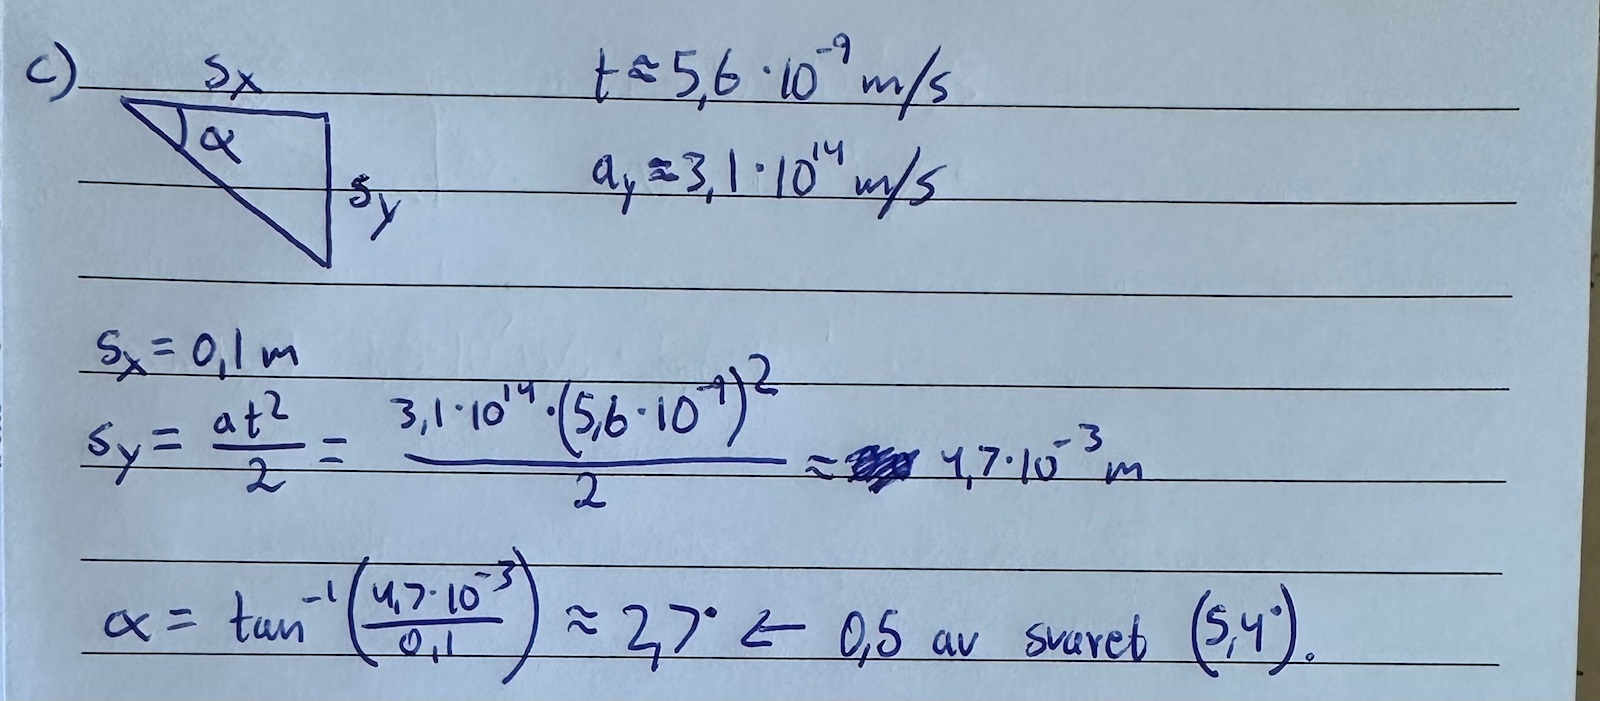 c) Sx t ≈ 5,6 · 10⁻⁹ m/s
α
Sy ay ≈ 3,1 · 10¹⁴ m/s
Sx = 0,1 m
Sy = at²/2 = 3,1 · 10¹⁴ · (5,6 · 10⁻⁹)²/2 ≈ 4,7 · 10⁻³ m
α = tan⁻¹(4,7 · 10⁻³/0,1) ≈ 2,7° ← 0,5 av svaret (5,4°).